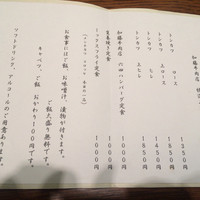 加藤牛肉店
トンカツ ロース 1350円
トンカツ 上ロース 1650円
トンカツ ヒレ 1450円
トンカツ 上ヒレ 1850円
加藤牛肉店 六四ハンバーグ定食 1000円
生姜焼き定食 1000円
ミックスフライ定食 1000円
お食事にはご飯、お味噌汁、漬物が付きます。
ご飯大盛り無料です。
キャベツ、ご飯 おかわり100円です。
ソフトドリンク、アルコールのご用意あります。